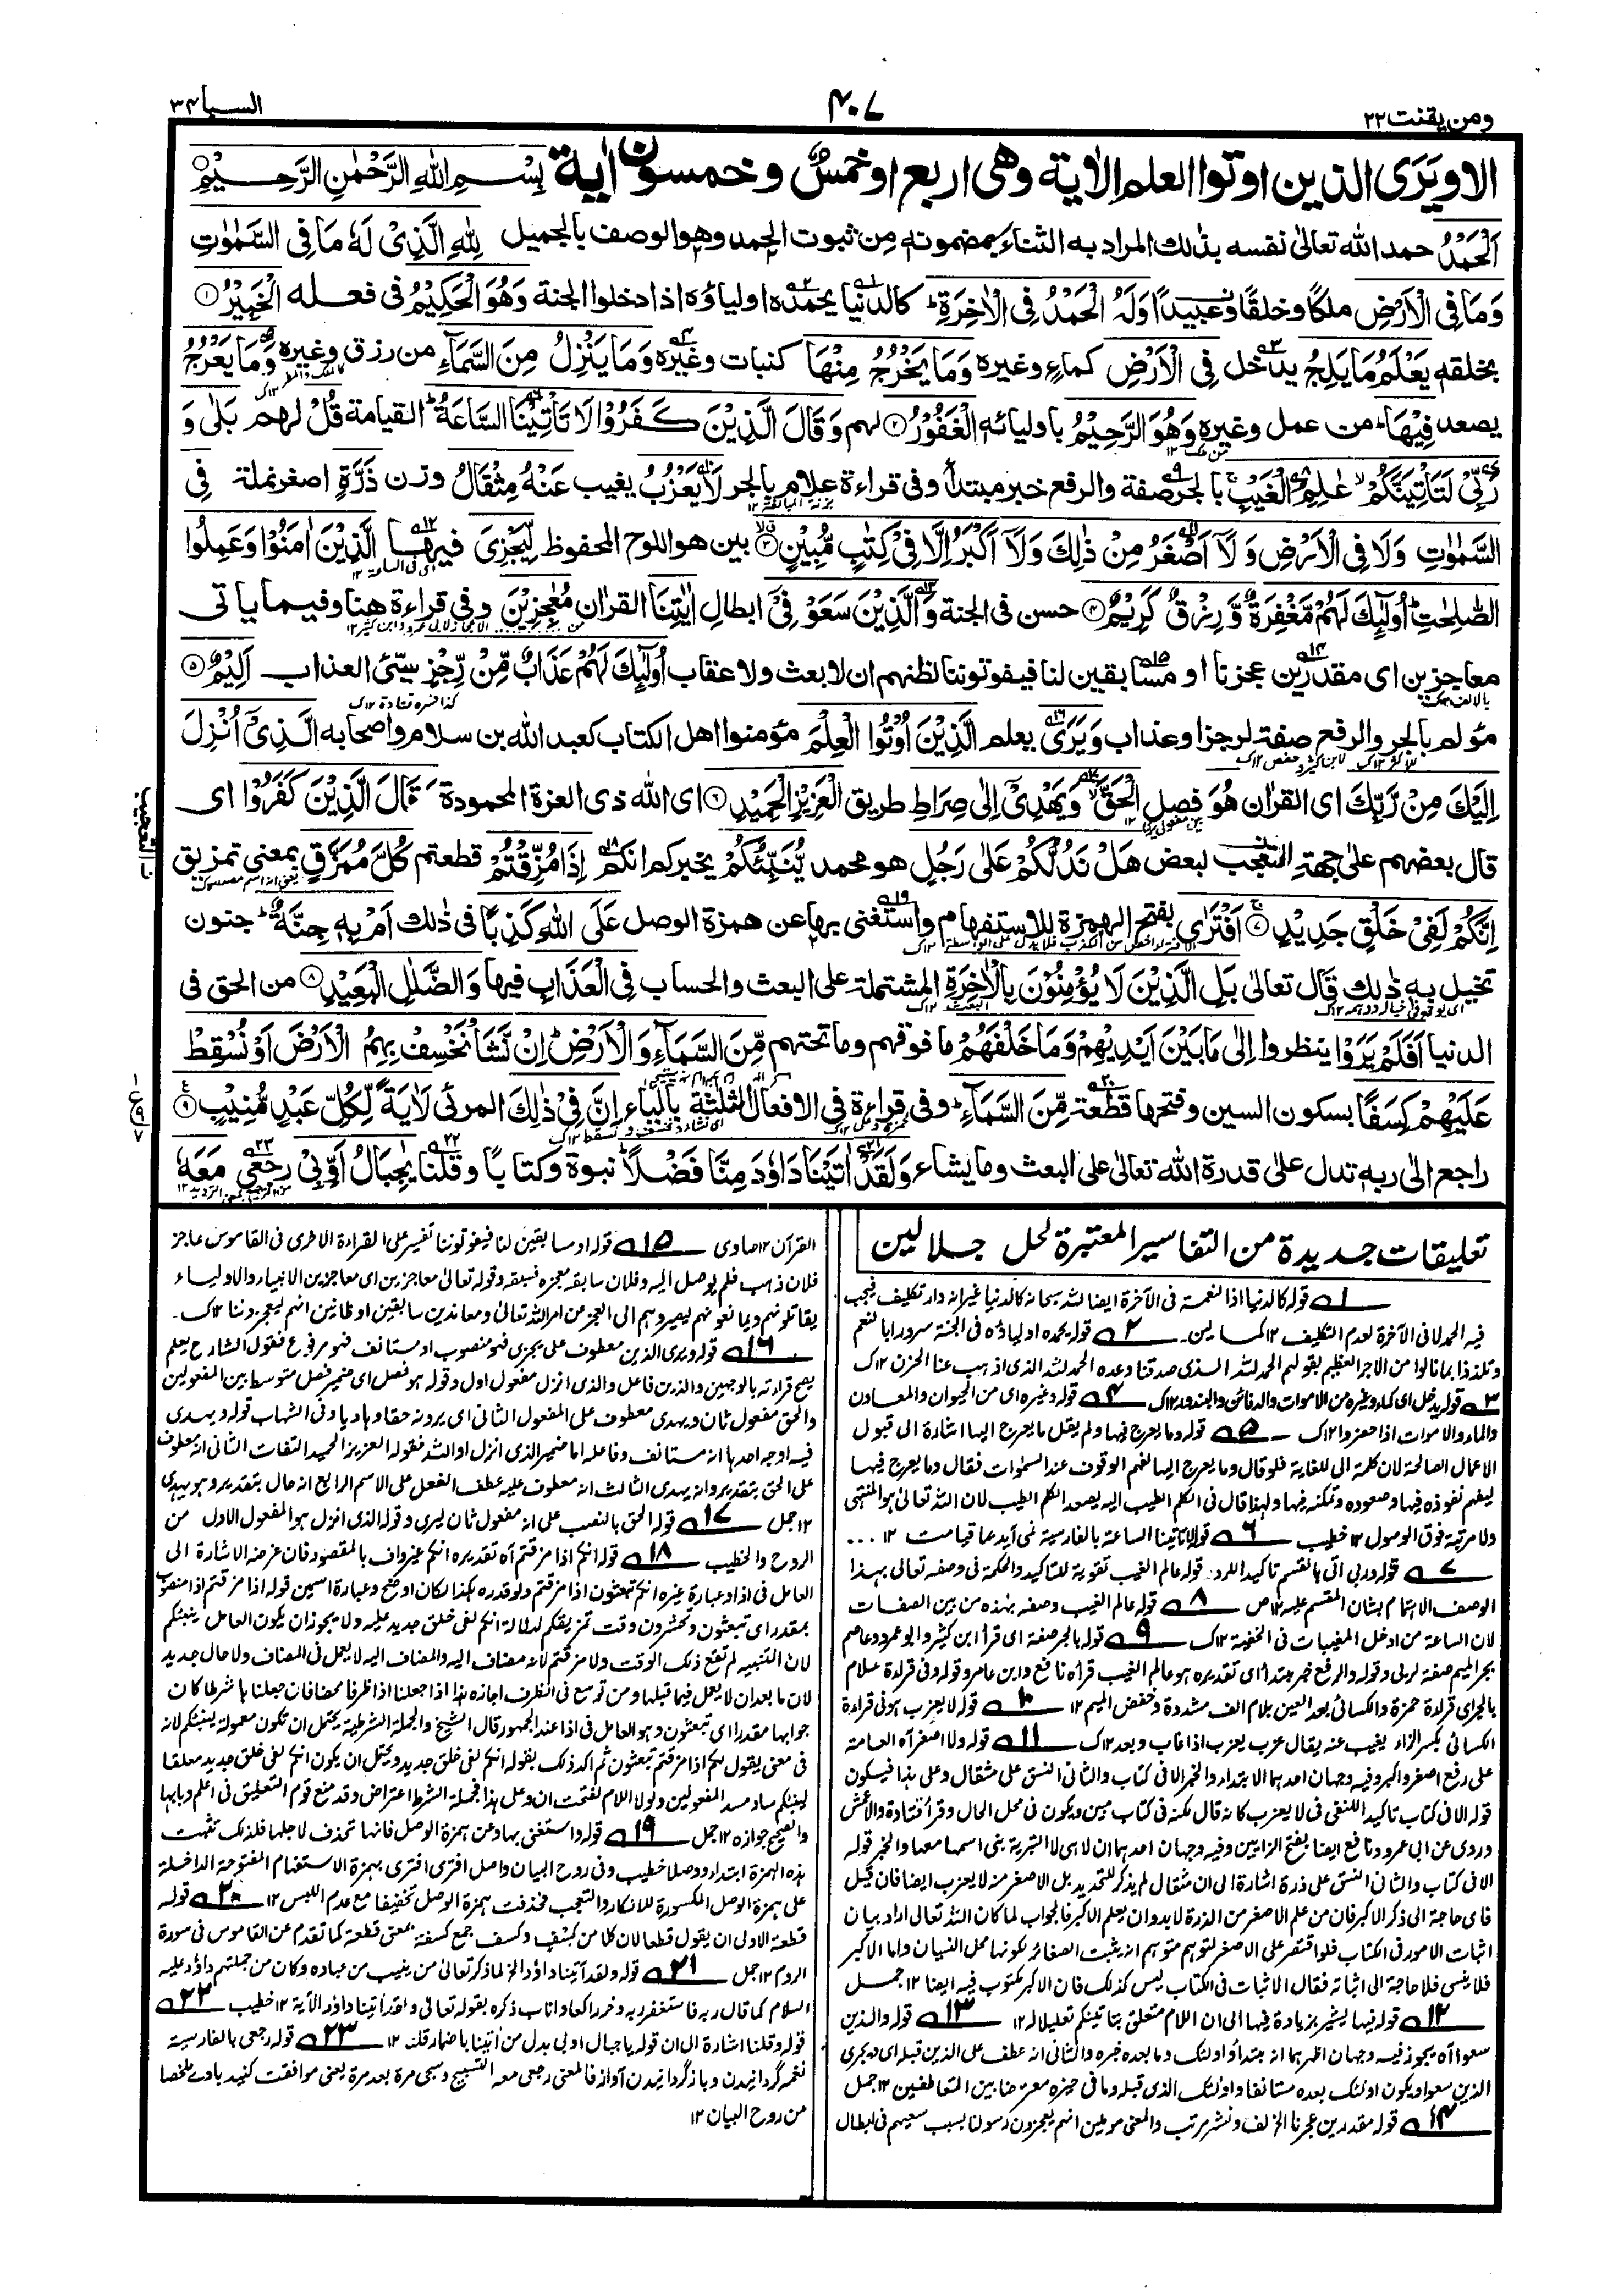 ومن يقنت ٢٢
٤٠٧
السبا ٣٤
الا ويرى الذين اوتوا العلم الاية وهى اربع او خمس وخمسون اية بِسْمِ اللهِ الرَّحْمٰنِ الرَّحِيْمِ
اَلْحَمْدُ حمد الله تعالىٰ نفسه بذٰلك المراد به الثناء بمضمونه من ثبوت الحمد وهو الوصف بالجميل لِلّٰهِ الَّذِىْ لَهٗ مَا فِى السَّمٰوٰتِ
وَمَا فِى الْاَرْضِ ملكًا وخلقًا وعبيدًا وَلَهُ الْحَمْدُ فِى الْاٰخِرَةِ ؕ كالدنيا يحمده اولياؤه اذا دخلوا الجنة وَهُوَ الْحَكِيْمُ فى فعله الْخَبِيْرُ ①
بخلقه يَعْلَمُ مَا يَلِجُ يدخل فِى الْاَرْضِ كماء وغيره وَمَا يَخْرُجُ مِنْهَا كنبات وغيره وَمَا يَنْزِلُ مِنَ السَّمَآءِ من رزق وغيره وَمَا يَعْرُجُ
يصعد فِيْهَا ؕ من عمل وغيره وَهُوَ الرَّحِيْمُ باوليائه الْغَفُوْرُ ② لهم وَقَالَ الَّذِيْنَ كَفَرُوْا لَا تَاْتِيْنَا السَّاعَةُ ؕ القيامة قُلْ لهم بَلٰى وَ
رَبِّىْ لَتَاْتِيَنَّكُمْ ۙ عٰلِمِ الْغَيْبِ ۚ بالجر صفة والرفع خبر مبتدأ وفى قراءة علام بالجر لَا يَعْزُبُ يغيب عَنْهُ مِثْقَالُ وزن ذَرَّةٍ اصغر نملة فِى
السَّمٰوٰتِ وَلَا فِى الْاَرْضِ وَلَآ اَصْغَرُ مِنْ ذٰلِكَ وَلَآ اَكْبَرُ اِلَّا فِىْ كِتٰبٍ مُّبِيْنٍ ③ بين هو اللوح المحفوظ لِّيَجْزِىَ فيها الَّذِيْنَ اٰمَنُوْا وَعَمِلُوا
الصّٰلِحٰتِ ؕ اُولٰٓئِكَ لَهُمْ مَّغْفِرَةٌ وَّرِزْقٌ كَرِيْمٌ ④ حسن فى الجنة وَالَّذِيْنَ سَعَوْ فِىْٓ ابطال اٰيٰتِنَا القراٰن مُعٰجِزِيْنَ وفى قراءة هنا وفيما ياتى
معاجزين اى مقدرين عجزنا او مسابقين لنا فيفوتوننا لظنهم ان لا بعث ولا عقاب اُولٰٓئِكَ لَهُمْ عَذَابٌ مِّنْ رِّجْزٍ سيئ العذاب اَلِيْمٌ ⑤
مؤلم بالجر والرفع صفة لرجز او عذاب وَيَرَى يعلم الَّذِيْنَ اُوْتُوا الْعِلْمَ مؤمنوا اهل الكتاب كعبد الله بن سلام واصحابه الَّذِىْٓ اُنْزِلَ
اِلَيْكَ مِنْ رَّبِّكَ اى القراٰن هُوَ فصل الْحَقَّ ۙ وَيَهْدِىْٓ اِلٰى صِرَاطِ طريق الْعَزِيْزِ الْحَمِيْدِ ⑥ اى الله ذى العزة المحمودة وَقَالَ الَّذِيْنَ كَفَرُوْا اى
قال بعضهم علىٰ جهة التعجب لبعض هَلْ نَدُلُّكُمْ عَلٰى رَجُلٍ هو محمد يُّنَبِّئُكُمْ يخبركم انكم اِذَا مُزِّقْتُمْ قطعتم كُلَّ مُمَزَّقٍ بمعنى تمزيق
اِنَّكُمْ لَفِىْ خَلْقٍ جَدِيْدٍ ⑦ اَفْتَرٰى بفتح الهمزة للاستفهام واستغنى بها عن همزة الوصل عَلَى اللهِ كَذِبًا فى ذٰلك اَمْ بِهٖ جِنَّةٌ ؕ جنون
تخيل به ذٰلك قال تعالىٰ بَلِ الَّذِيْنَ لَا يُؤْمِنُوْنَ بِالْاٰخِرَةِ المشتملة على البعث والحساب فِى الْعَذَابِ فيها وَالضَّلٰلِ الْبَعِيْدِ ⑧ من الحق فى
الدنيا اَفَلَمْ يَرَوْا ينظروا اِلٰى مَا بَيْنَ اَيْدِيْهِمْ وَمَا خَلْفَهُمْ ما فوقهم وما تحتهم مِّنَ السَّمَآءِ وَالْاَرْضِ ؕ اِنْ نَّشَاْ نَخْسِفْ بِهِمُ الْاَرْضَ اَوْ نُسْقِطْ
عَلَيْهِمْ كِسَفًا بسكون السين وفتحها قطعة مِّنَ السَّمَآءِ ؕ وفى قراءة فى الافعال الثلثة بالياء اِنَّ فِىْ ذٰلِكَ المرئى لَاٰيَةً لِّكُلِّ عَبْدٍ مُّنِيْبٍ ⑨
راجع الى ربه تدل على قدرة الله تعالىٰ على البعث وما يشاء وَلَقَدْ اٰتَيْنَا دَاوٗدَ مِنَّا فَضْلًا ؕ نبوة وكتابًا وقلنا يٰجِبَالُ اَوِّبِىْ رجعى مَعَهٗ
تعليقات جديدة من التفاسير المعتبرة لحل جلالين
١ قوله كالدنيا اذ النعمة فى الآخرة ايضا لله سبحانه كالدنيا غير انه دار تكليف فيجب
فيه الحمد لا فى الآخرة لعدم التكليف ١٢ كمالين ٢ قوله يحمده اولياؤه فى الجنة سرورا بالنعم
وتلذذا بما نالوا من الاجر العظيم بقولهم الحمد لله الذى صدقنا وعده الحمد لله الذى اذهب عنا الحزن ١٢ ك
٣ قوله يدخل اى كماء وغيره من الاموات والدفائن والبذور ١٢ ك ٤ قوله وغيره اى من الحيوان والمعادن
والماء والاموات اذا حشروا ١٢ ك ٥ قوله وما يعرج فيها ولم يقل ما يعرج اليها اشارة الى قبول
الاعمال الصالحة لان كلمة الى للغاية فلو قال وما يعرج اليها لفهم الوقوف عند السموات فقال وما يعرج فيها
ليفهم نفوذه فيها وصعوده وتمكنه فيها ولهذا قال فى الكلم الطيب اليه يصعد الكلم الطيب لان الله تعالى هو المنتهى
ولا مرتبة فوق الوصول ١٢ خطيب ٦ قوله لا تاتينا الساعة بالفارسية نمى آيد بما قيامت ١٢
٧ قوله وربى اتى بالقسم تاكيدا للرد قوله عالم الغيب تقوية للتاكيد والحكمة فى وصفه تعالى بهذا
الوصف الاهتمام بشان المقسم عليه ١٢ ص ٨ قوله عالم الغيب وصفه بهذه من بين الصفات
لان الساعة من ادخل المغيبات فى الخفية ١٢ ك ٩ قوله بالجر صفة اى قرأ ابن كثير وابو عمرو وعاصم
بجر الميم صفة لربى وقوله والرفع خبر مبتدأ اى تقديره هو عالم الغيب قرأه نافع وابن عامر وقوله وفى قراءة علام
بالجر اى قراءة حمزة والكسائى بعد العين بلام الف مشددة وخفض الميم ١٢ ١٠ قوله لا يعزب هو فى قراءة
الكسائى بكسر الزاء يغيب عنه يقال عزب يعزب اذا غاب وبعد ١٢ ك ١١ قوله ولا اصغر آه العامة
على رفع اصغر واكبر وفيه وجهان احدهما الابتداء والخبر الا فى كتاب والثانى النسق على مثقال وعلى هذا فيكون
قوله الا فى كتاب تاكيد للنفى فى لا يعزب كانه قال لكنه فى كتاب مبين ويكون فى محل الحال وقرأ قتادة والاعمش
وروى عن ابى عمرو ونافع ايضا بفتح الرايين وفيه وجهان احدهما ان لا هى لا التبرية بنى اسمها معها والخبر قوله
الا فى كتاب والثانى النسق على ذرة اشارة الى ان مثقال لم يذكر للتحديد بل الاصغر منه لا يعزب ايضا فان قيل
فاى حاجة الى ذكر الاكبر فان من علم الاصغر من الذرة لابد وان يعلم الاكبر فالجواب لما كان الله تعالى اراد بيان
اثبات الامور فى الكتاب فلو اقتصر على الاصغر لتوهم متوهم انه يثبت الصغائر لكونها محل النسيان واما الاكبر
فلا ينسى فلا حاجة الى اثباته فقال الاثبات فى الكتاب ليس كذلك فان الاكبر مكتوب فيه ايضا ١٢ جمل
١٢ قوله فيها يشير بزيادة فيها الى ان اللام متعلق بتاتينكم تعليلا له ١٢ ١٣ قوله والذين
سعوا آه يجوز فيه وجهان اظهرهما انه مبتدأ واولئك وما بعده خبره والثانى انه عطف على الذين قبله اى ويجزى
الذين سعوا ويكون اولئك بعده مستانفا واولئك الذى قبله وما فى حيزه معترضا بين المتعاطفين ١٢ جمل
١٤ قوله مقدرين عجزنا الخ لف ونشر مرتب والمعنى مؤملين انهم يعجزون رسولنا بسبب سعيهم فى ابطال
القرآن ١٢ صاوى ١٥ قوله او مسابقين لنا فيفوتوننا تفسير على القراءة الاخرى فى القاموس عاجز
فلان ذهب فلم يوصل اليه وفلان سابقه فعجزه فسبقه وقوله تعالىٰ معاجزين اى معاجزين الانبياء والاولياء
يقاتلونهم ويمانعونهم ليصيروهم الى العجز عن امر الله تعالىٰ ومعاندين سابقين او ظانين انهم ليعجزوننا ١٢ ك
١٦ قوله ويرى الذين معطوف على يجزى فهو منصوب او مستانف فهو مرفوع فقول الشارح يعلم
يصح قراءته بالوجهين والذين فاعل والذى انزل مفعول اول وقوله هو فصل اى ضمير فصل متوسط بين المفعولين
والحق مفعول ثان ويهدى معطوف على المفعول الثانى اى يرونه حقا وهاديا وفى الشهاب قوله ويهدى
فيه اوجه احدها انه مستانف وفاعله اما ضمير الذى انزل او الله فقوله العزيز الحميد التفات الثانى انه معطوف
على الحق بتقدير وانه يهدى الثالث انه معطوف عليه عطف الفعل على الاسم الرابع انه حال بتقدير وهو يهدى
١٢ جمل ١٧ قوله الحق بالنصب على انه مفعول ثان ليرى وقوله الذى انزل هو المفعول الاول من
الروح والخطيب ١٨ قوله انكم اذا مزقتم آه تقديره انكم غير واف بالمقصود فان غرضه الاشارة الى
العامل فى اذا وعبارة غيره انكم تبعثون اذا مزقتم ولو قدره هكذا لكان اوضح وعبارة السمين قوله اذا مزقتم اذا منصوب
بمقدر اى تبعثون وتحشرون وقت تمزيقكم لدلالة انكم لفى خلق جديد عليه ولا يجوز ان يكون العامل ينبئكم
لان التنبيه لم تقع ذلك الوقت ولا مزقتم لانه مضاف اليه والمضاف اليه لا يعمل فى المضاف ولا حال جديد
لان ما بعد ان لا يعمل فيما قبلها ومن توسع فى الظرف اجازه هذا اذا جعلنا اذا ظرفا محضا فان جعلناها شرطا كان
جوابها مقدرا اى تبعثون وهو العامل فى اذا عند الجمهور قال الشيخ والجملة الشرطية يحتمل ان تكون معمولة لينبئكم لانه
فى معنى يقول لكم اذا مزقتم تبعثون ثم اكد ذلك بقوله انكم لفى خلق جديد ويحتمل ان يكون انكم لفى خلق جديد معلقا
لينبئكم ساد مسد المفعولين ولولا اللام لفتحت ان وعلى هذا فجملة الشرط اعتراض وقد منع قوم التعليق فى اعلم وبابها
والصحيح جوازه ١٢ جمل ١٩ قوله واستغنى بها عن همزة الوصل فانها تحذف لاجلها فلذلك تثبت
هذه الهمزة ابتداء ووصلا خطيب وفى روح البيان واصل افترى اافترى بهمزة الاستفهام المفتوحة الداخلة
على همزة الوصل المكسورة للانكار والتعجب فحذفت همزة الوصل تخفيفا مع عدم اللبس ١٢ ٢٠ قوله
قطعة الاولى ان يقول قطعا لان كلا من كسف وكسف جمع كسفة بمعنى قطعة كما تقدم عن القاموس فى سورة
الروم ١٢ جمل ٢١ قوله ولقد آتينا داؤد الخ لما ذكر تعالىٰ من ينيب من عباده وكان من جملتهم داؤد عليه
السلام كما قال ربه فاستغفر ربه وخر راكعا واناب ذكره بقوله تعالىٰ ولقد اٰتينا داؤد الآية ١٢ خطيب ٢٢
قوله وقلنا اشارة الى ان قوله يا جبال اوبى بدل من اٰتينا باضمار قلنا ١٢ ٢٣ قوله رجعى بالفارسية
نغمه گردانيدن وباز گردانيدن آواز فالمعنى رجعى معه التسبيح وسبحى مرة بعد مرة يعنى موافقت كنيد باوے ملخصا
من روح البيان ١٢